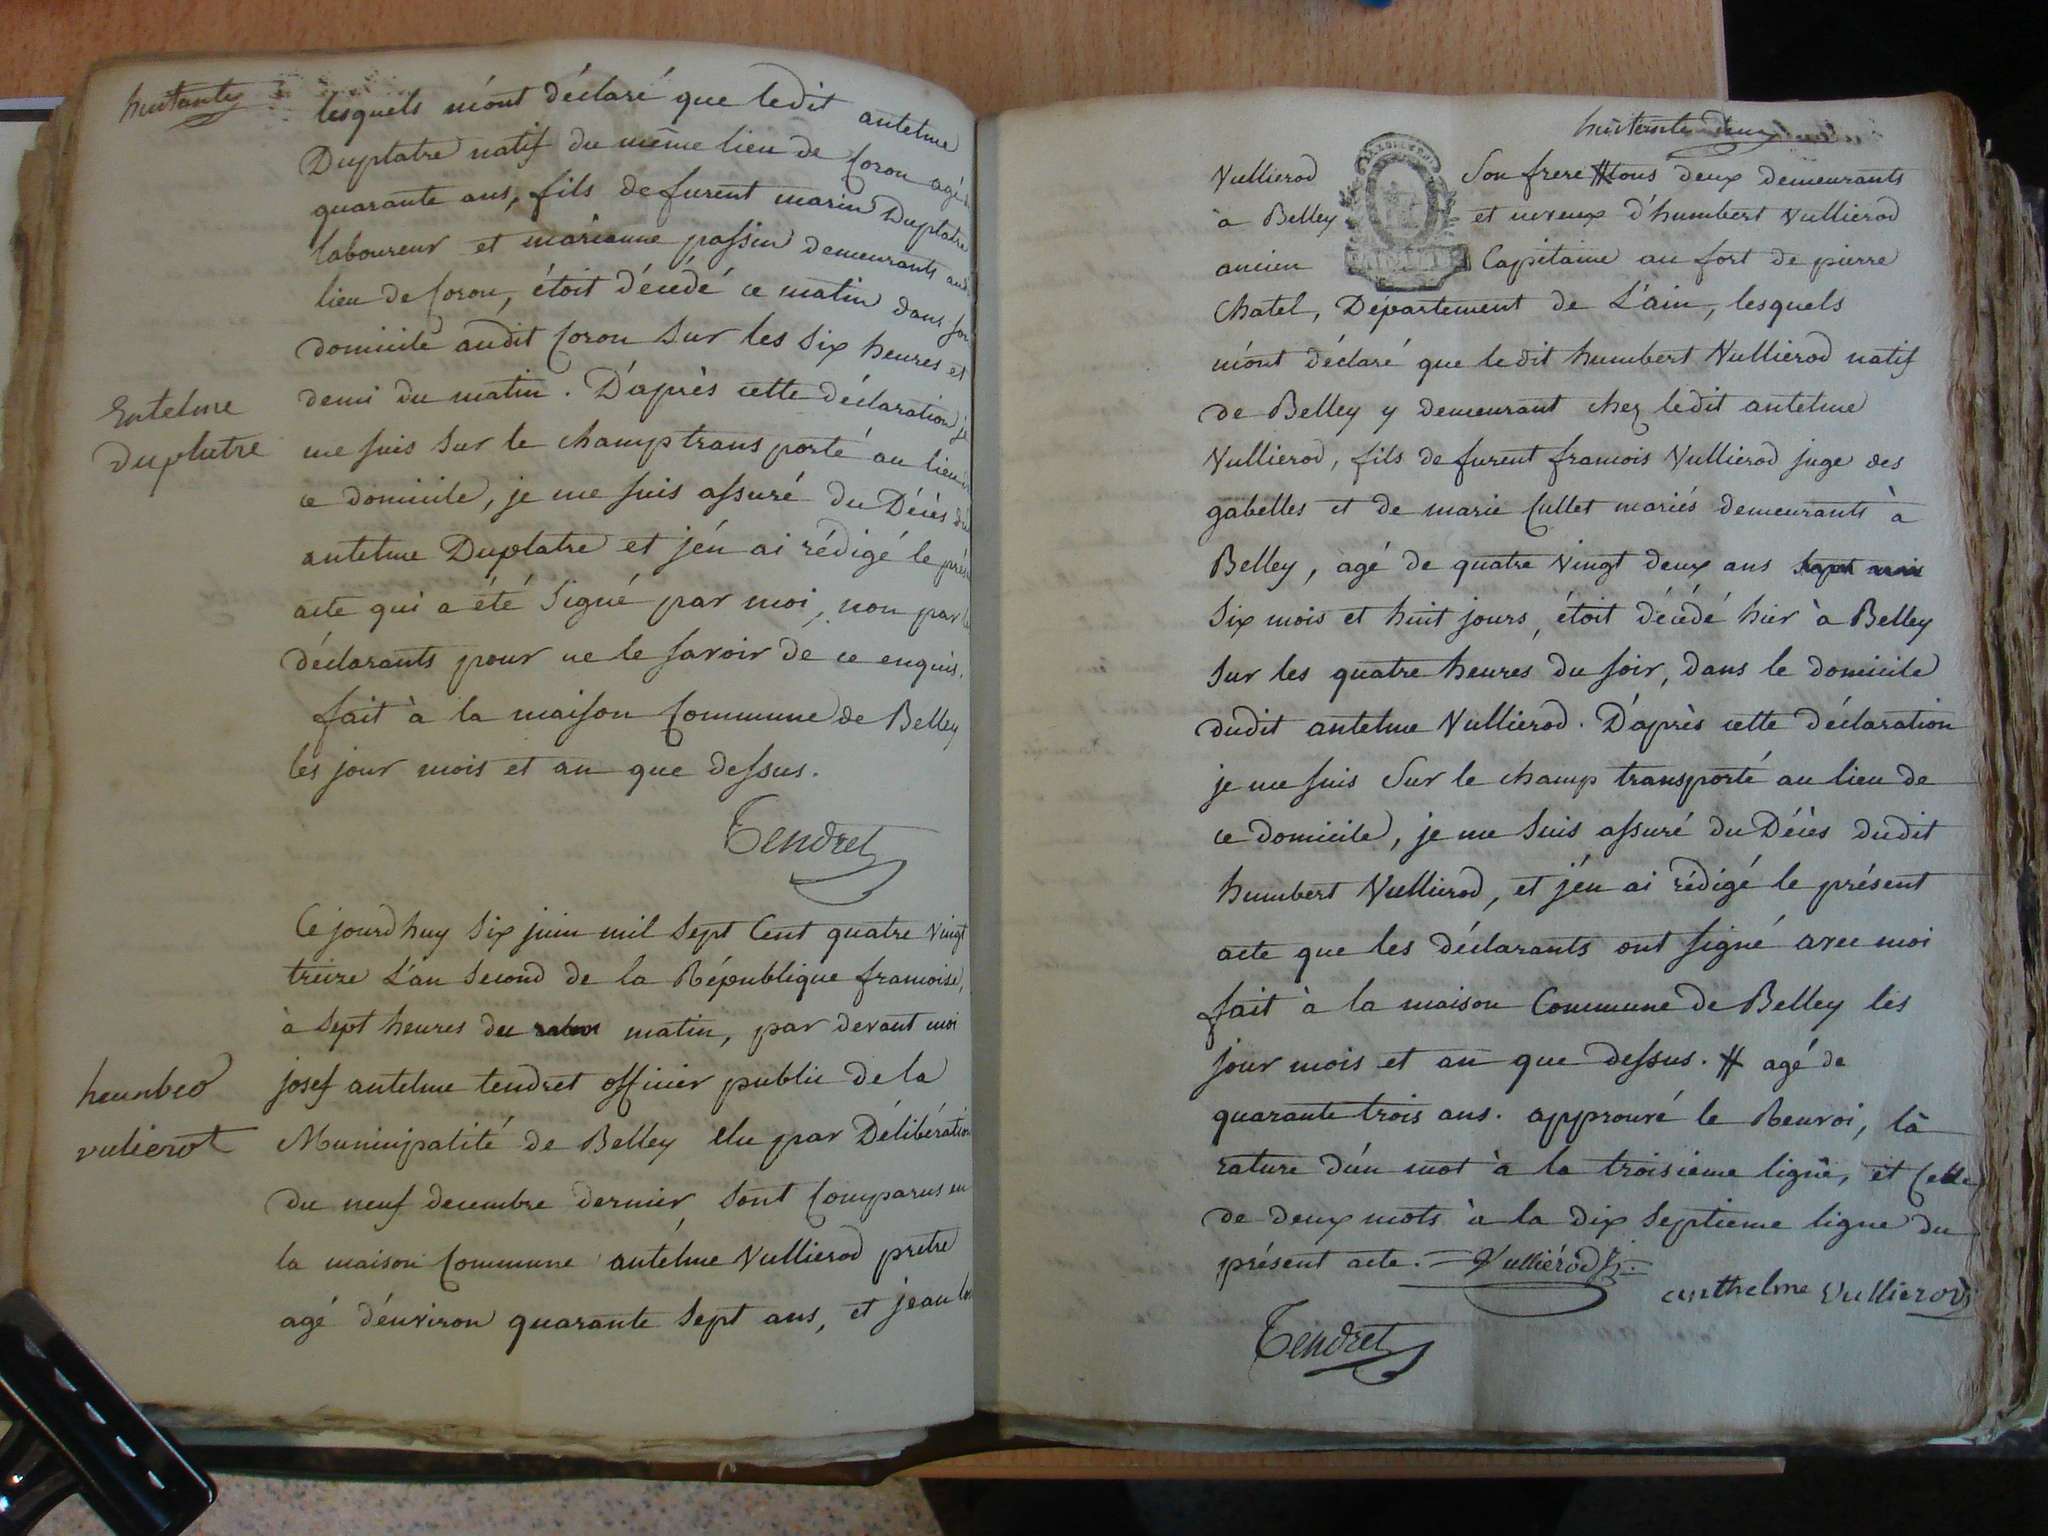 huitante
lesquels m'ont déclaré que ledit antelme
Duplatre natif du même lieu de Coron agé
quarante ans, fils de furent marin Duplatre
laboureur et marianne passin demeurants aud
lieu de Coron, étoit décédé ce matin dans son
domicile audit Coron sur les six heures et
demi du matin. D'après cette déclaration je
Entelme
duplutre
me suis sur le champ transporté au lieu
ce domicile, je me suis assuré du Décès du
antelme Duplatre et j'en ai rédigé le prés
acte qui a été signé par moi, non par
déclarants pour ne le savoir de ce enquis.
fait à la maison Commune de Belley
les jour mois et an que dessus.
Tendret
Ce jourd'huy six juin mil sept Cent quatre vingt
treize L'an second de la République francoise,
à sept heures du matin, par devant moi
humbeo
vulierot
josef antelme tendret officier public de la
Municipalité de Belley élu par Délibération
du neuf decembre dernier sont Comparus en
la maison Commune antélme Vullierod pretre
agé d'environ quarante sept ans, et jean
huitante deux
Vullierod son frere # tous deux demeurants
à Belley et neveux d'humbert Vullierod
ancien Capitaine au fort de pierre
Chatel, Département de L'ain, lesquels
m'ont déclaré que ledit humbert Vullierod natif
de Belley y demeurant chez ledit antelme
Vullierod, fils de furent francois Vullierod juge des
gabelles et de marie Cullet mariés demeurants à
Belley, agé de quatre vingt deux ans
six mois et huit jours, étoit décédé hier à Belley
sur les quatre heures du soir, dans le domicile
dudit antelme Vullierod. D'après cette déclaration
je me suis sur le champ transporté au lieu de
ce domicile, je me suis assuré du Décès dudit
humbert Vullierod, et j'en ai rédigé le présent
acte que les déclarants ont signé avec moi
fait à la maison Commune de Belley les
jour mois et an que dessus. # agé de
quarante trois ans. approuvé le Renvoi, la
rature d'un mot à la troisieme ligne, et Celle
de deux mots à la dix septieme ligne du
présent acte. Vulliérod
anthelme Vullierod
Tendret